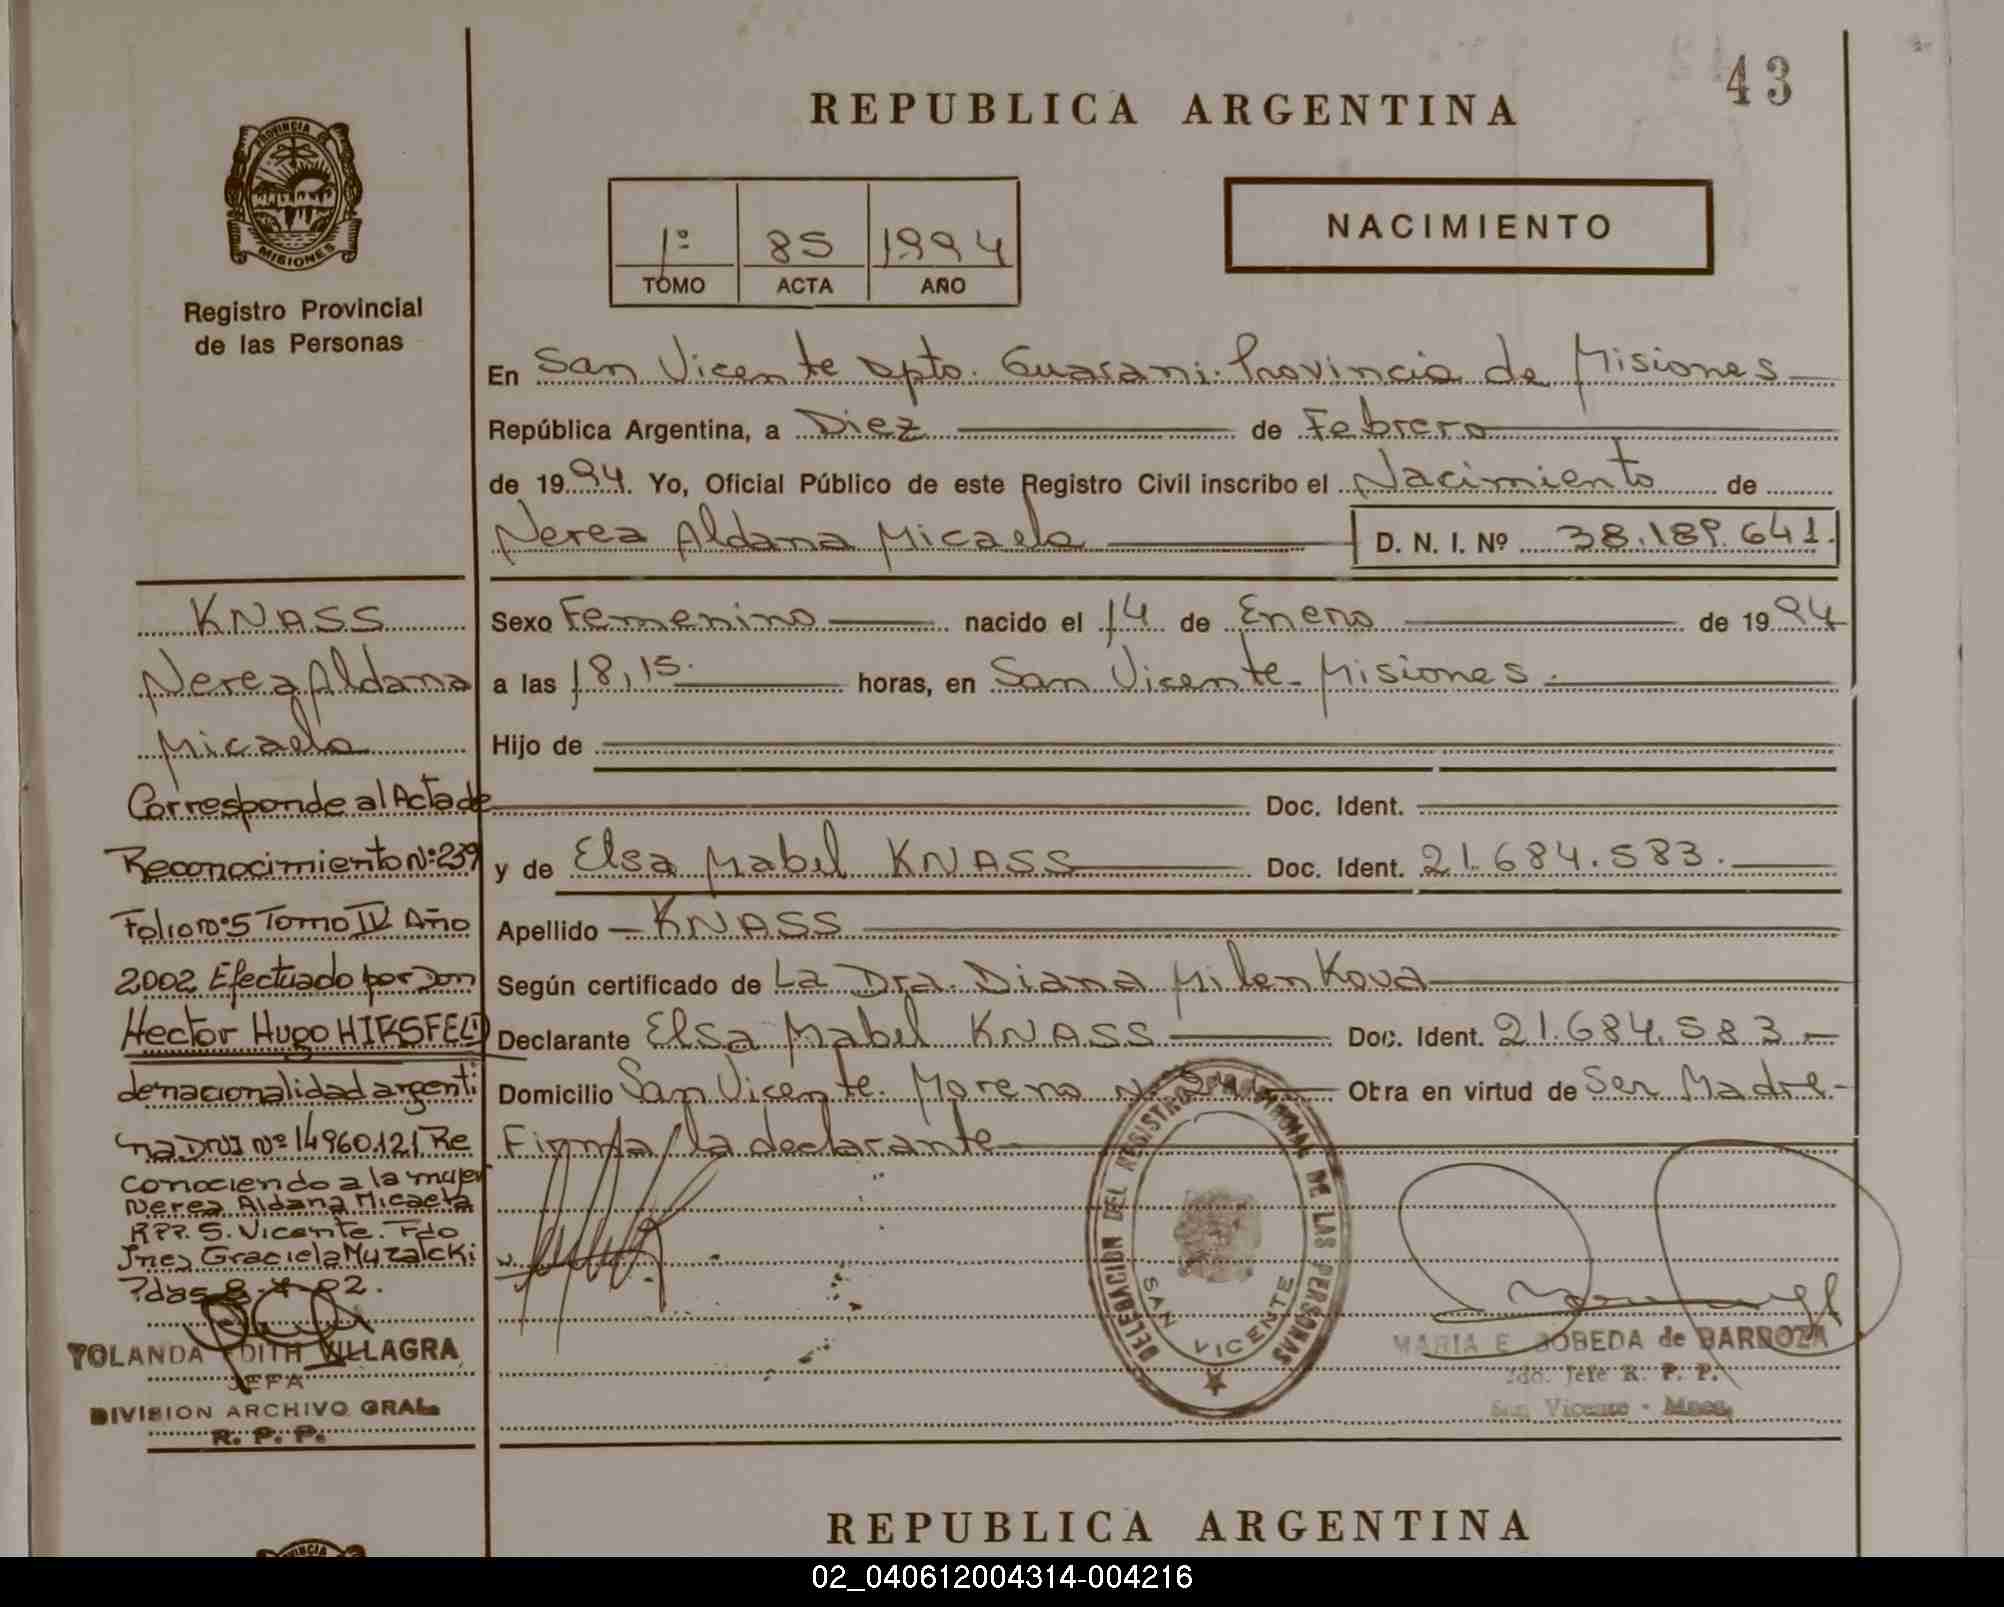 43
REPUBLICA ARGENTINA
PROVINCIA DE
MISIONES
NACIMIENTO
1º 85 1994
TOMO ACTA AÑO
Registro Provincial
de las Personas
En San Vicente Dpto. Guarani. Provincia de Misiones
República Argentina, a Diez de Febrero
de 1994. Yo, Oficial Público de este Registro Civil inscribo el Nacimiento de
Nerea Aldana Micaela D. N. I. Nº 38.189.641.
Sexo Femenino nacido el 14 de Enero de 1994
a las 18,15. horas, en San Vicente - Misiones.
Hijo de
Doc. Ident.
y de Elsa Mabel KNASS Doc. Ident. 21.684.583.
Apellido KNASS
Según certificado de La Dra. Diana Milenkova
Declarante Elsa Mabel KNASS Doc. Ident. 21.684.583.-
Domicilio San Vicente. Moreno Obra en virtud de Ser Madre.-
Firma la declarante
KNASS
Nerea Aldana
Micaela
Corresponde al Acta de
Reconocimiento Nº 239
Folio Nº 5 Tomo IV Año
2002 Efectuado por Don
Hector Hugo HIRSFELD
de nacionalidad argenti
na DNI Nº 14960.121 Re
conociendo a la mujer
Nerea Aldana Micaela
RPP. S. Vicente. Fdo
Ines Graciela Muzalcki
Pdas 8- -02.
YOLANDA EDITH VILLAGRA
JEFA
DIVISION ARCHIVO GRAL.
R. P. P.
DELEGACION DEL REGISTRO PROVINCIAL DE LAS PERSONAS
SAN VICENTE
MARIA E. BOBEDA de BARBOZA
2do. Jefe R. P. P.
San Vicente - Mnes.
REPUBLICA ARGENTINA
02_040612004314-004216